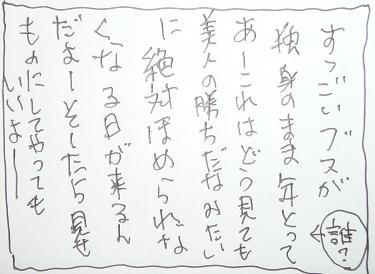 すっごいブスが
独身のまま年とって
あーこれはどう見ても
美人の勝ちだなみたい
に絶対ほめ〜られな
くなる日が来るん
だよーそしたら見も
ものにしてやっても
いいよー
誰?